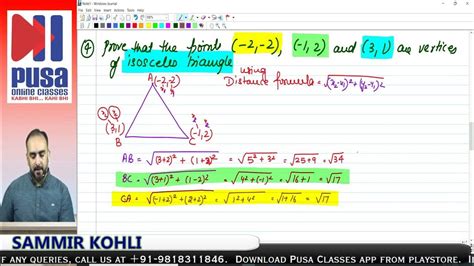 Note1 - Windows Journal
PUSA
ONLINE CLASSES
KABHI BHI... KAHI BHI
④ Prove that the points (-2,-2), (-1,2) and (3,1) are vertices
of isosceles triangle using
Distance formula = √(x₂-x₁)²+(y₂-y₁)²
A(-2,-2)
x₁ y₁
(3,1)
B
x₂ y₂
C(-1,2)
AB = √(3+2)² + (1+2)² = √5²+3² = √25+9 = √34
BC = √(3+1)² + (1-2)² = √4²+(-1)² = √16+1 = √17
CA = √(-1+2)² + (2+2)² = √1²+4² = √1+16 = √17
SAMMIR KOHLI
IF ANY QUERIES, CALL US AT +91-9818311846. DOWNLOAD PUSA CLASSES APP FROM PLAYSTORE.